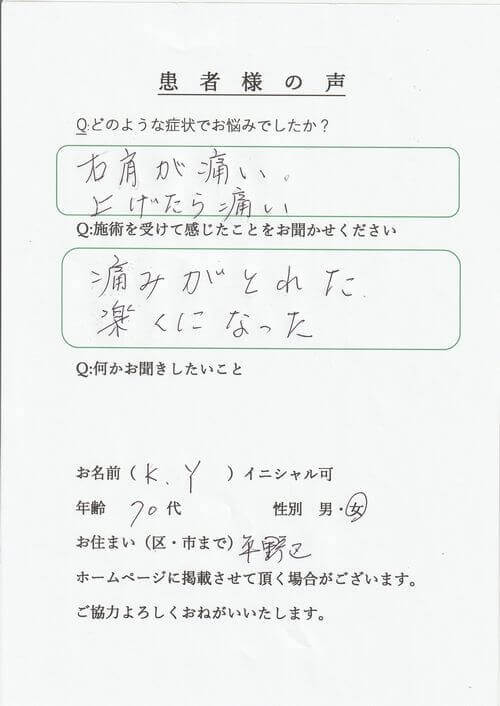 患者様の声
Q:どのような症状でお悩みでしたか？
右肩が痛い。
上げたら痛い
Q:施術を受けて感じたことをお聞かせください
痛みがとれた.
楽くになった
Q:何かお聞きしたいこと
お名前（K.Y）イニシャル可
年齢 70代 性別 男・女
お住まい（区・市まで）平野区
ホームページに掲載させて頂く場合がございます。
ご協力よろしくおねがいいたします。